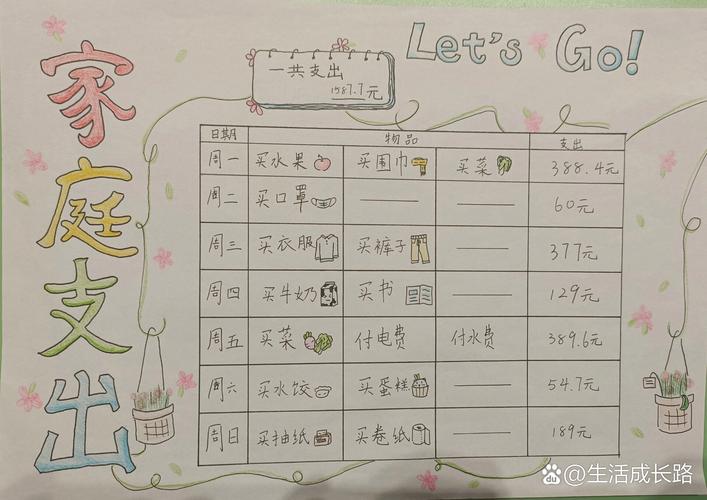 家庭支出
Let's Go!
一共支出
1587.7元
日期 物品 支出
周一 买水果 买围巾 买菜 388.4元
周二 买口罩 —— —— 60元
周三 买衣服 买裤子 —— 377元
周四 买牛奶 买书 —— 129元
周五 买菜 付电费 付水费 389.6元
周六 买水饺 买蛋糕 —— 54.7元
周日 买抽纸 买卷纸 —— 189元
Bai du @生活成长路